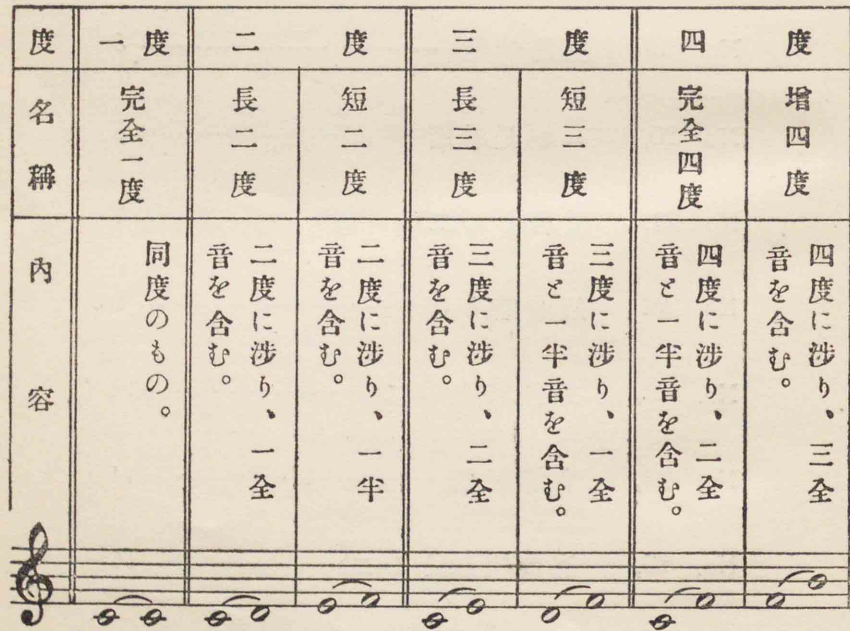 度
一度
二度
三度
四度
名稱
完全一度
長二度
短二度
長三度
短三度
完全四度
增四度
內容
同度のもの。
二度に涉り、一全
音を含む。
二度に涉り、一半
音を含む。
三度に涉り、二全
音を含む。
三度に涉り、一全
音と一半音を含む。
四度に涉り、二全
音と一半音を含む。
四度に涉り、三全
音を含む。